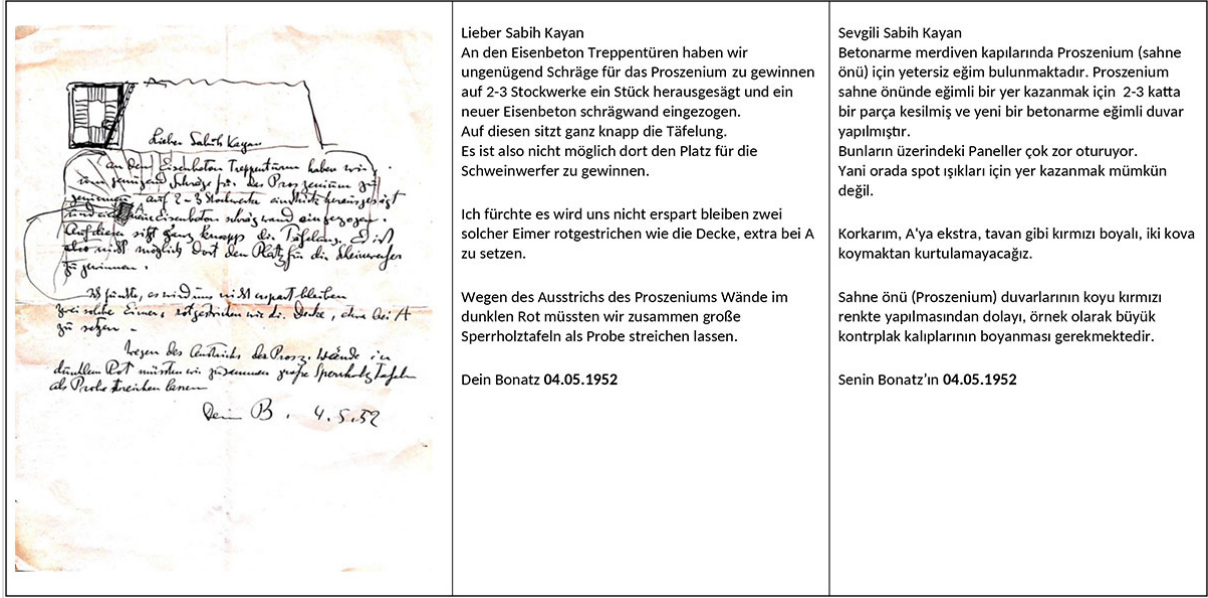 Lieber Sabih Kayan
An den Eisenbeton Treppentürm haben wir
um genügend Schräge für das Proszenium zu
gewinnen auf 2-3 Stockwerke ein Stück herausgesägt
und ein neue Eisenbeton schrägwand eingezogen.
Auf diesen sitzt ganz knapp die Täfelung. Es ist
also nicht möglich dort den Platz für die Scheinwerfer
zu gewinnen.
Ich fürchte, es wird uns nicht erspart bleiben
zwei solche Eimer, rotgestrichen wie die Decke, extra bei A
zu setzen -
Wegen des Anstrichs der Prosz. Wände im
dunklen Rot müssten wir zusammen große Sperrholztafeln
als Probe streichen lassen
Dein B. 4.5.52
Lieber Sabih Kayan
An den Eisenbeton Treppentüren haben wir
ungenügend Schräge für das Proszenium zu gewinnen
auf 2-3 Stockwerke ein Stück herausgesägt und ein
neuer Eisenbeton schrägwand eingezogen.
Auf diesen sitzt ganz knapp die Täfelung.
Es ist also nicht möglich dort den Platz für die
Schweinwerfer zu gewinnen.
Ich fürchte es wird uns nicht erspart bleiben zwei
solcher Eimer rotgestrichen wie die Decke, extra bei A
zu setzen.
Wegen des Ausstrichs des Proszeniums Wände im
dunklen Rot müssten wir zusammen große
Sperrholztafeln als Probe streichen lassen.
Dein Bonatz 04.05.1952
Sevgili Sabih Kayan
Betonarme merdiven kapılarında Proszenium (sahne
önü) için yetersiz eğim bulunmaktadır. Proszenium
sahne önünde eğimli bir yer kazanmak için 2-3 katta
bir parça kesilmiş ve yeni bir betonarme eğimli duvar
yapılmıştır.
Bunların üzerindeki Paneller çok zor oturuyor.
Yani orada spot ışıkları için yer kazanmak mümkün
değil.
Korkarım, A'ya ekstra, tavan gibi kırmızı boyalı, iki kova
koymaktan kurtulamayacağız.
Sahne önü (Proszenium) duvarlarının koyu kırmızı
renkte yapılmasından dolayı, örnek olarak büyük
kontrplak kalıplarının boyanması gerekmektedir.
Senin Bonatz'ın 04.05.1952